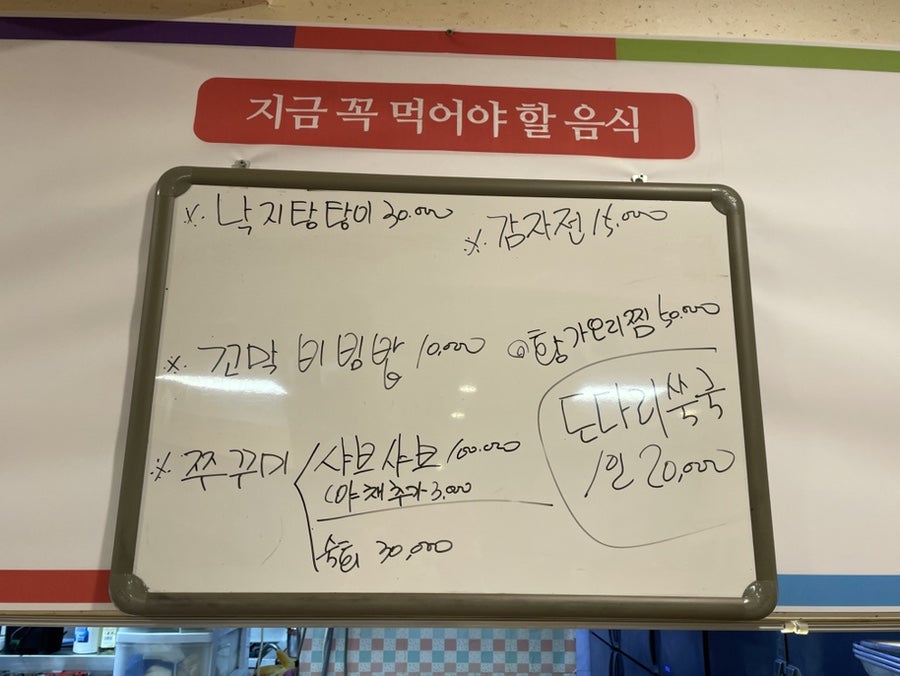 지금 꼭 먹어야 할 음식
※. 낙지탕탕이 30.000
※. 감자전 15.000
※. 꼬막 비빔밥 10,000
◎ 황가오리찜 50.000
도다리쑥국
1인 20,000
※. 쭈꾸미
샤브샤브 100.000
(야채추가 3,000
숙회 30,000